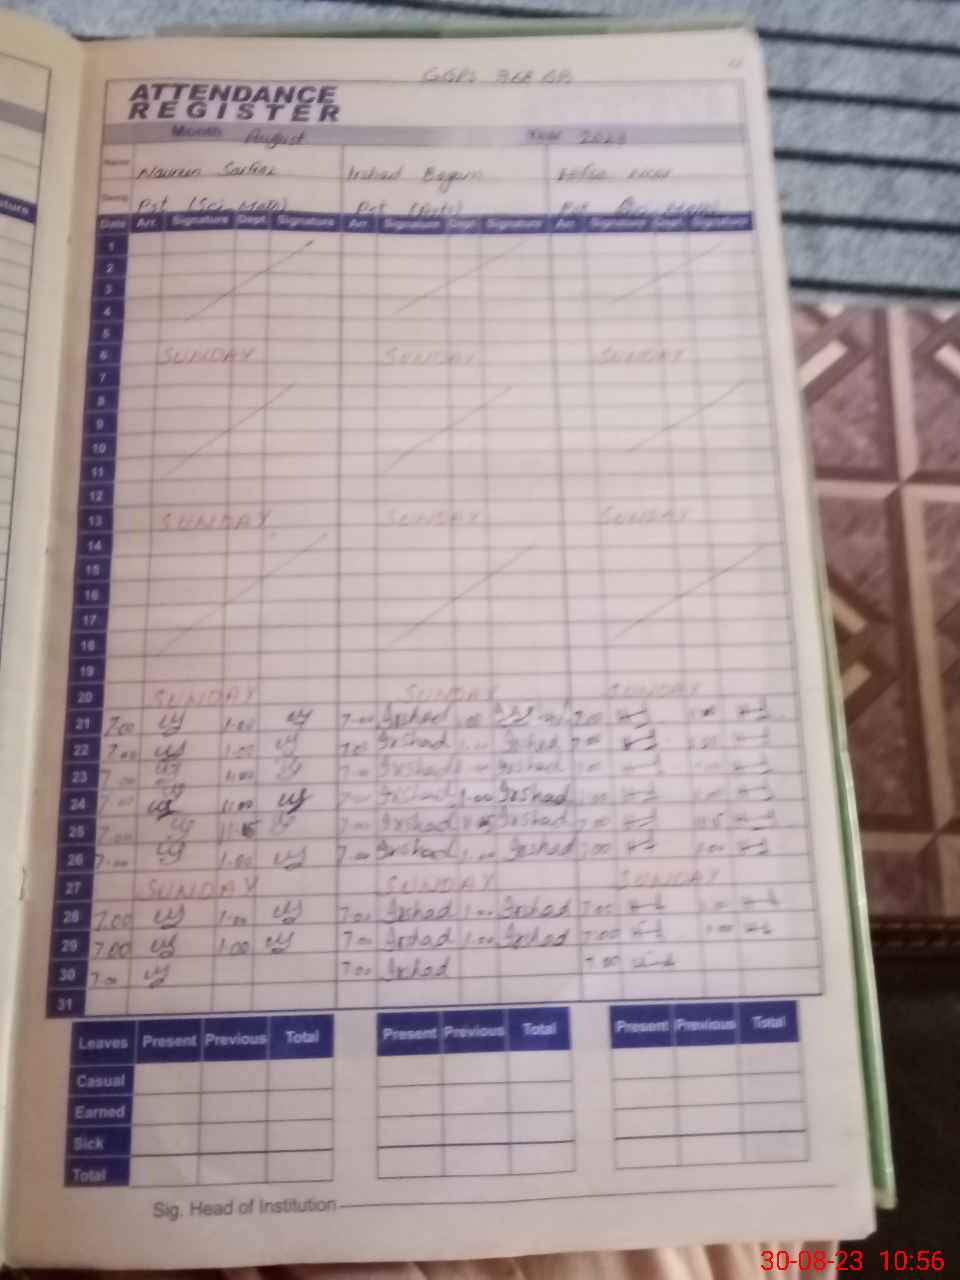 GGPS
ATTENDANCE
REGISTER
Month August Year 2023
Name Naureen Sarfraz Irshad Begum
Desig Pst (Sci-Math) Pst (Arts) Pst
Date Arr. Signature Dept. Signature Arr. Signature Dept. Signature Arr. Signature Dept. Signature
1
2
3
4
5
6 SUNDAY SUNDAY SUNDAY
7
8
9
10
11
12
13 SUNDAY SUNDAY SUNDAY
14
15
16
17
18
19
20 SUNDAY SUNDAY SUNDAY
21 7.00 1.00 7.00 Irshad 1.00 7.00 1.00
22 7.00 1.00 7.00 Irshad 1.00 Irshad 7.00 1.00
23 7.00 1.00 7.00 Irshad Irshad 7.00 1.00
24 7.00 11.00 7.00 Irshad 1.00 Irshad 7.00 1.00
25 7.00 7.00 Irshad Irshad 7.00
26 7.00 1.00 7.00 Irshad 1.00 Irshad 7.00 1.00
27 SUNDAY SUNDAY SUNDAY
28 7.00 1.00 7.00 Irshad 1.00 Irshad 7.00 1.00
29 7.00 1.00 7.00 Irshad 1.00 Irshad 7.00 1.00
30 7.00 7.00 Irshad 7.00
31
Leaves Present Previous Total Present Previous Total Present Previous Total
Casual
Earned
Sick
Total
Sig. Head of Institution
30-08-23 10:56